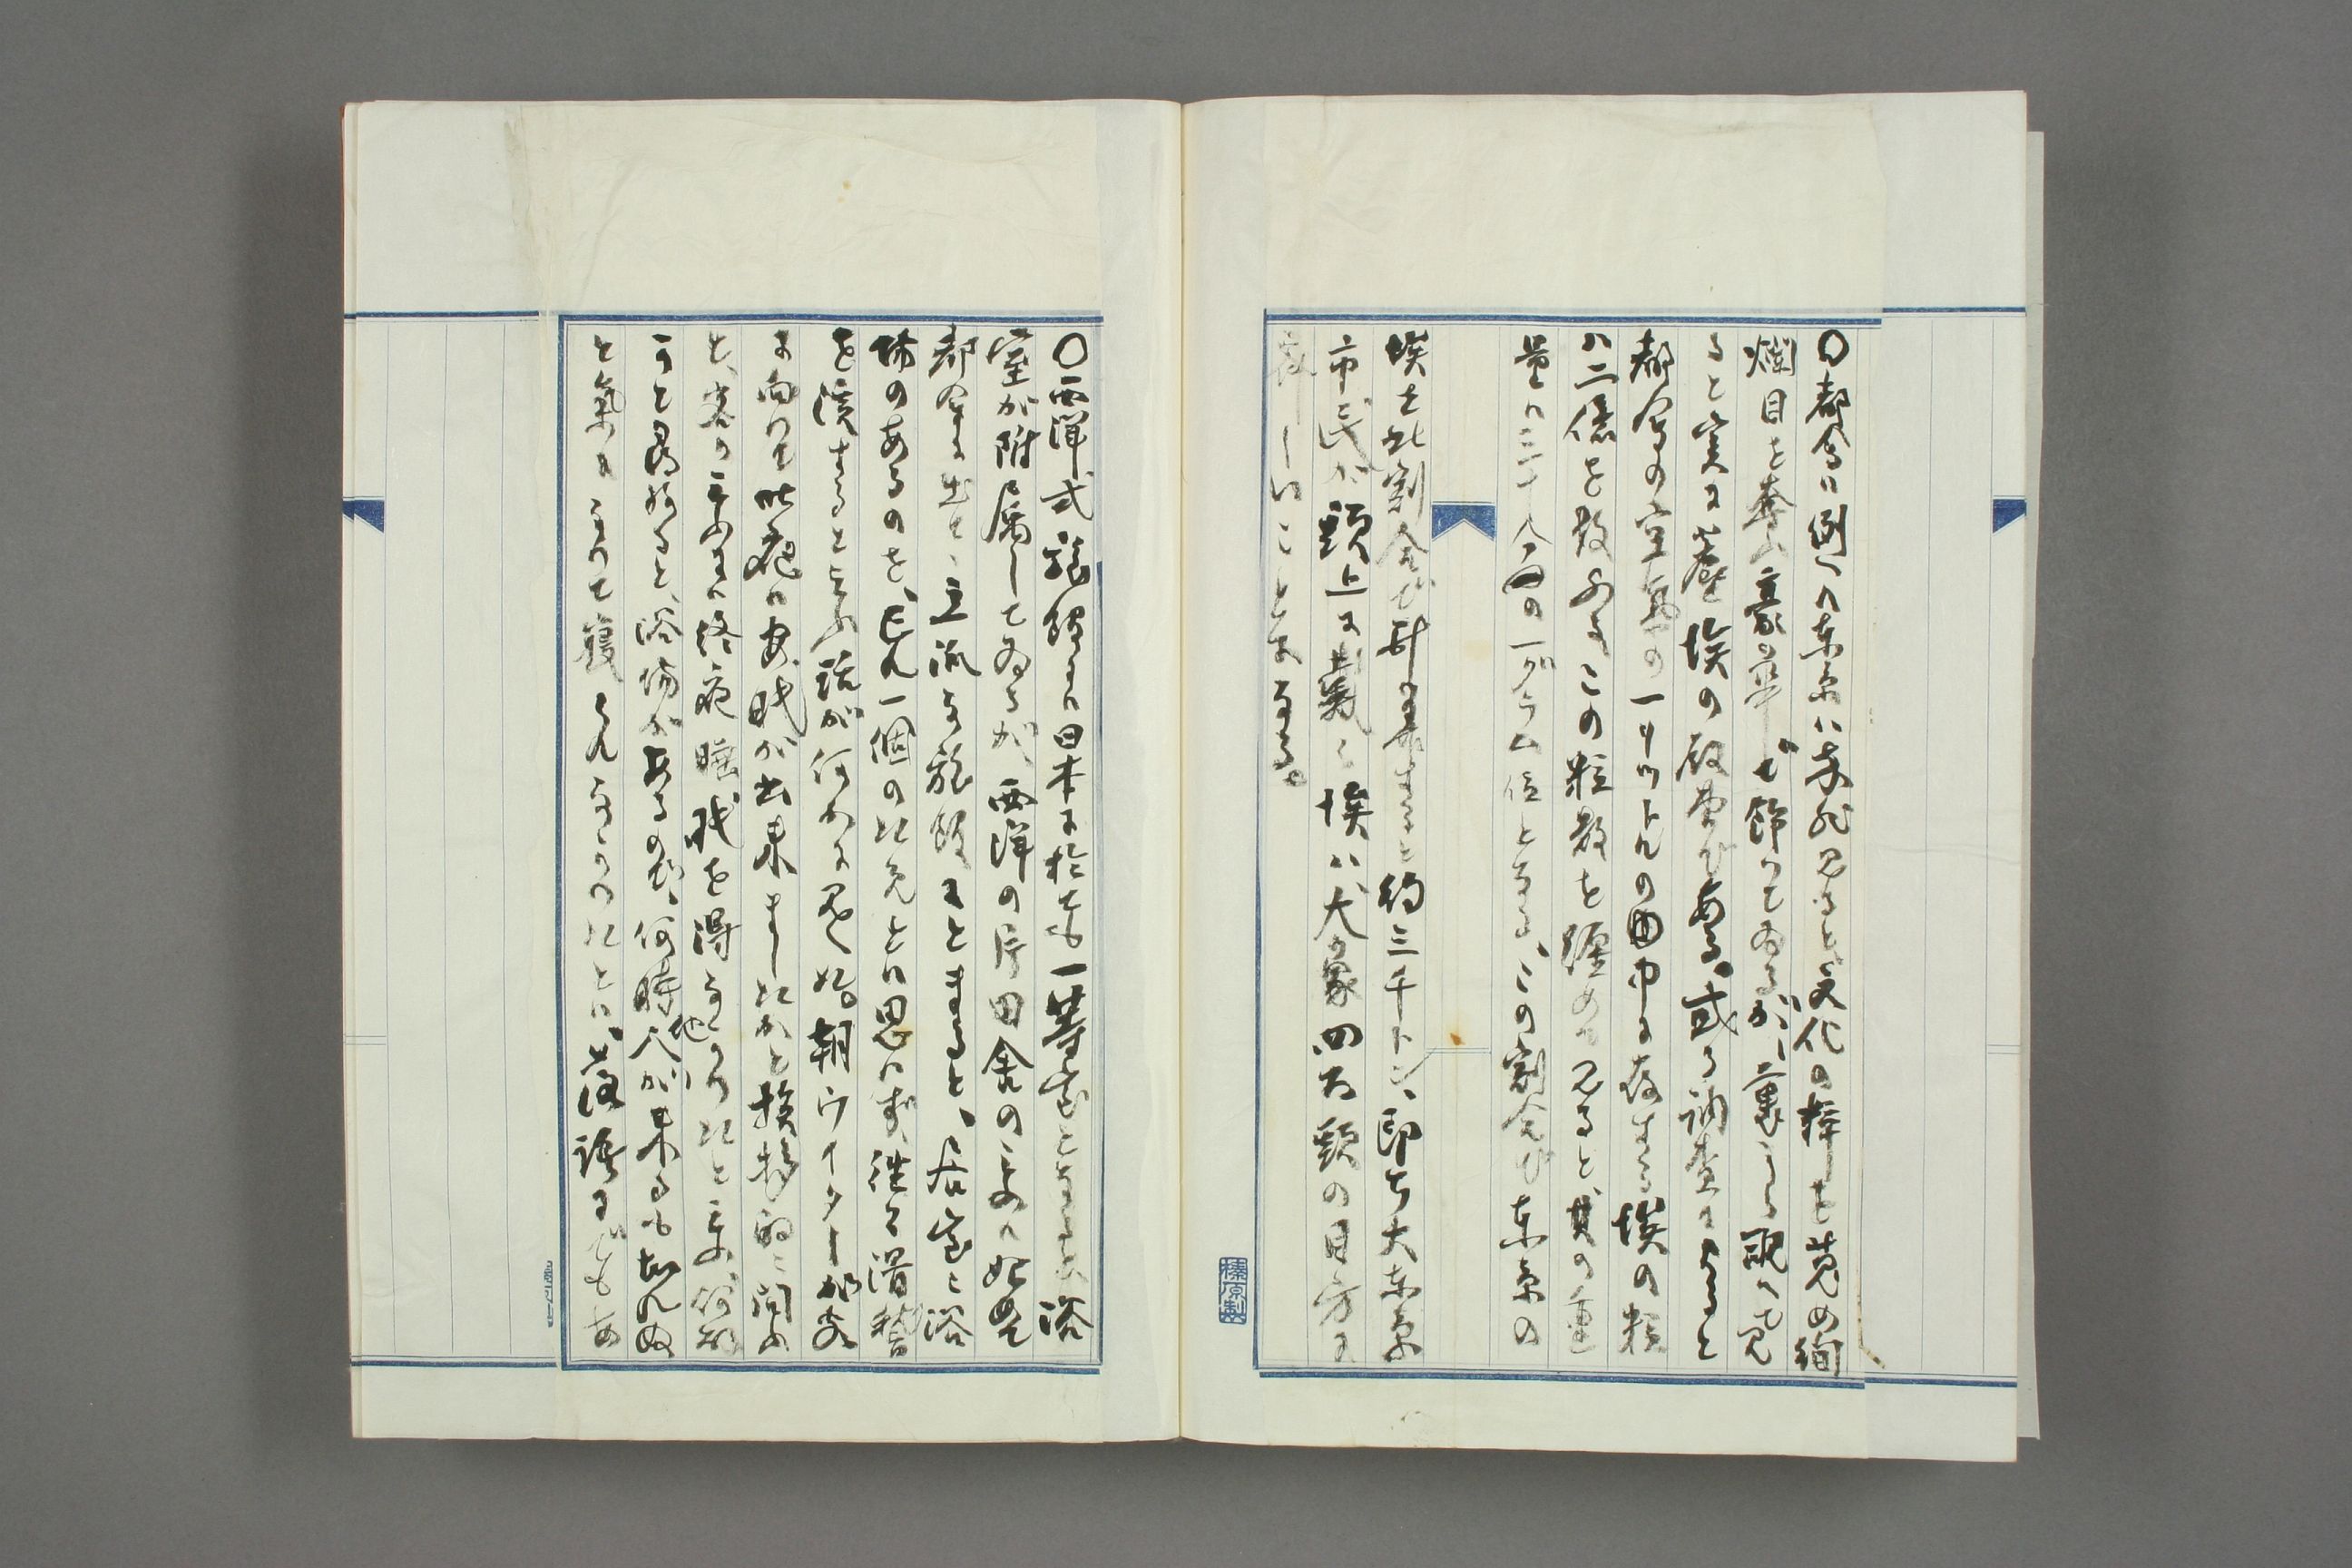 〇都会は例へハ東京ハ未成品ると文化の粋を蒐め絢
爛目を奪ふ豪華で飾つてゐるが、裏から覗いて見
ると実に塵埃の殿堂である。或る調査によると
都会の空気の一リットルの中に存する埃の粒
ハ二億を数ふ、この粒数を纏めて見ると、其の重
量は三千分の一グラム位となる、この割合で東京の
埃を此割合で計算すると約三千トン、即ち大東京
市民が頭上に戴く埃ハ大象四百頭の目方に
敵しいことになる。
〇西洋式旅館は日本に於ても一等室となると浴
室が附属してゐるが、西洋の片田舎のものは始めて
都会に出て、立派な旅館に泊まると、居室に浴
場のあるのを、己れ一個のためとは思はず、往々滑稽
を演ずるといふ話が何かに見ゆ。朝ウイターが客
に向つて昨夜は安眠が出来ましたかと挨拶的に問ふ
と、客の云ふには終夜睡眠を得なかつたと云ふ、何故
かと尋ねると、浴場があるので、何時他人が来るも知れぬ
と気になつて寝られなかつたとは、落語にでもあ
榛原製